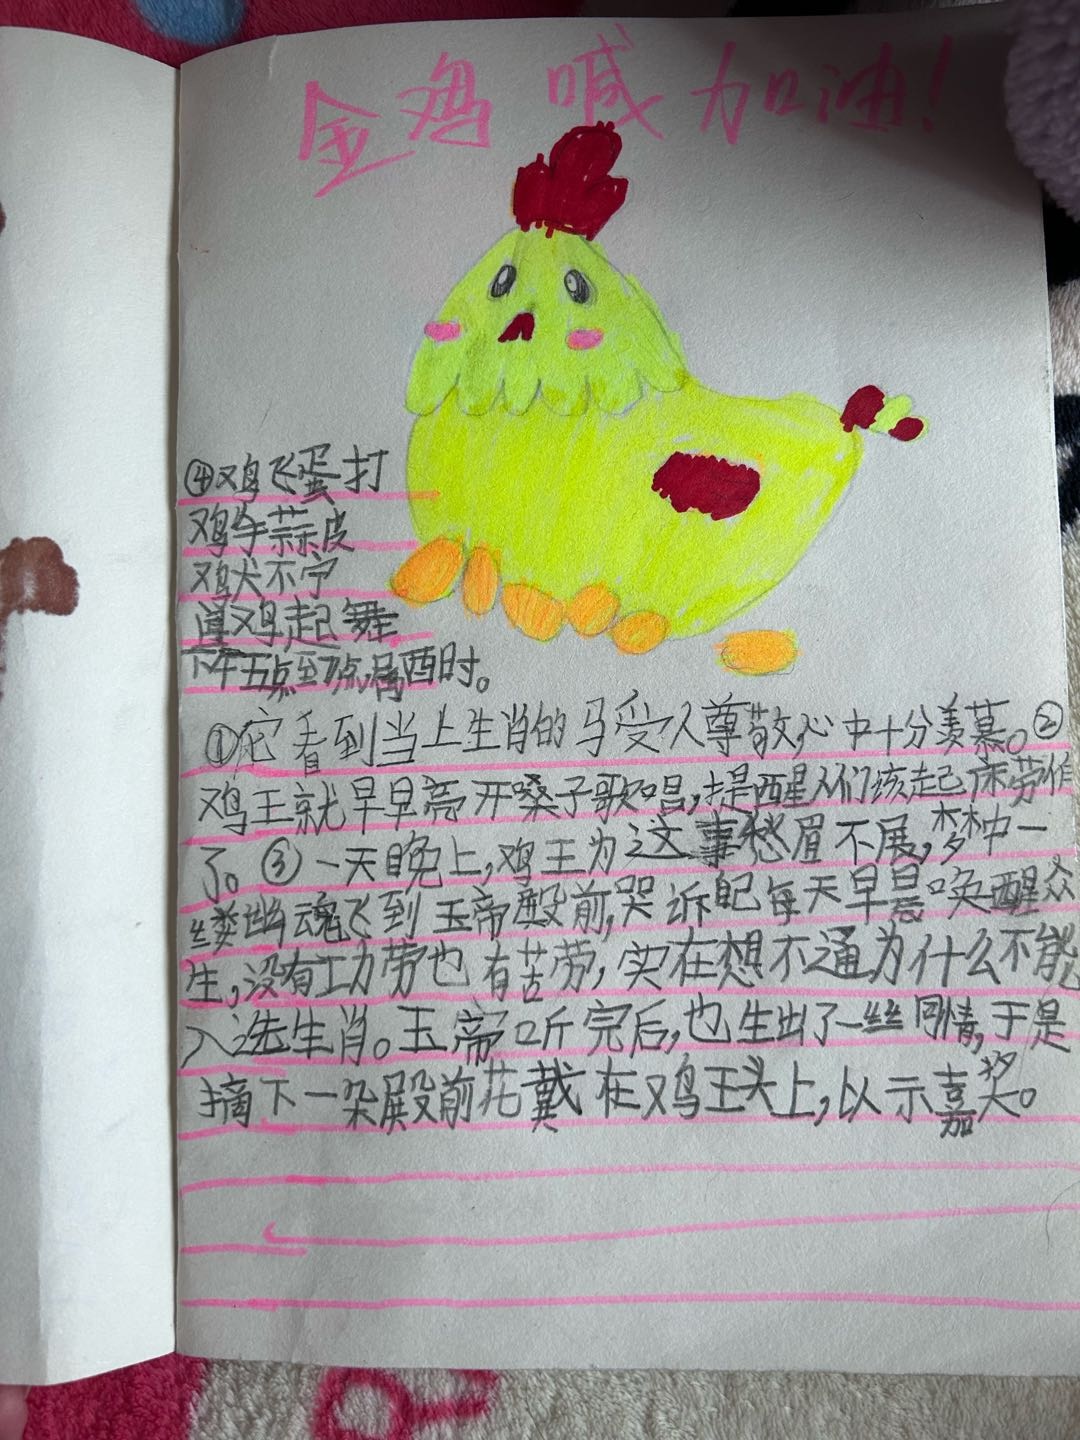 金鸡喊加油！
④鸡飞蛋打
鸡牛蒜皮
鸡犬不宁
闻鸡起舞
下午五点至7点,属酉时。
①它看到当上生肖的马受人尊敬,心中十分羡慕。②
鸡王就早早亮开嗓子歌唱,提醒人们该起床劳作
了。③一天晚上,鸡王为这事愁眉不展,梦中一
缕幽魂飞到玉帝殿前,哭诉自己每天早晨唤醒众
生,没有功劳也有苦劳,实在想不通为什么不能
入选生肖。玉帝听完后,也生出了一丝同情,于是
摘下一朵殿前花戴在鸡王头上,以示嘉奖。